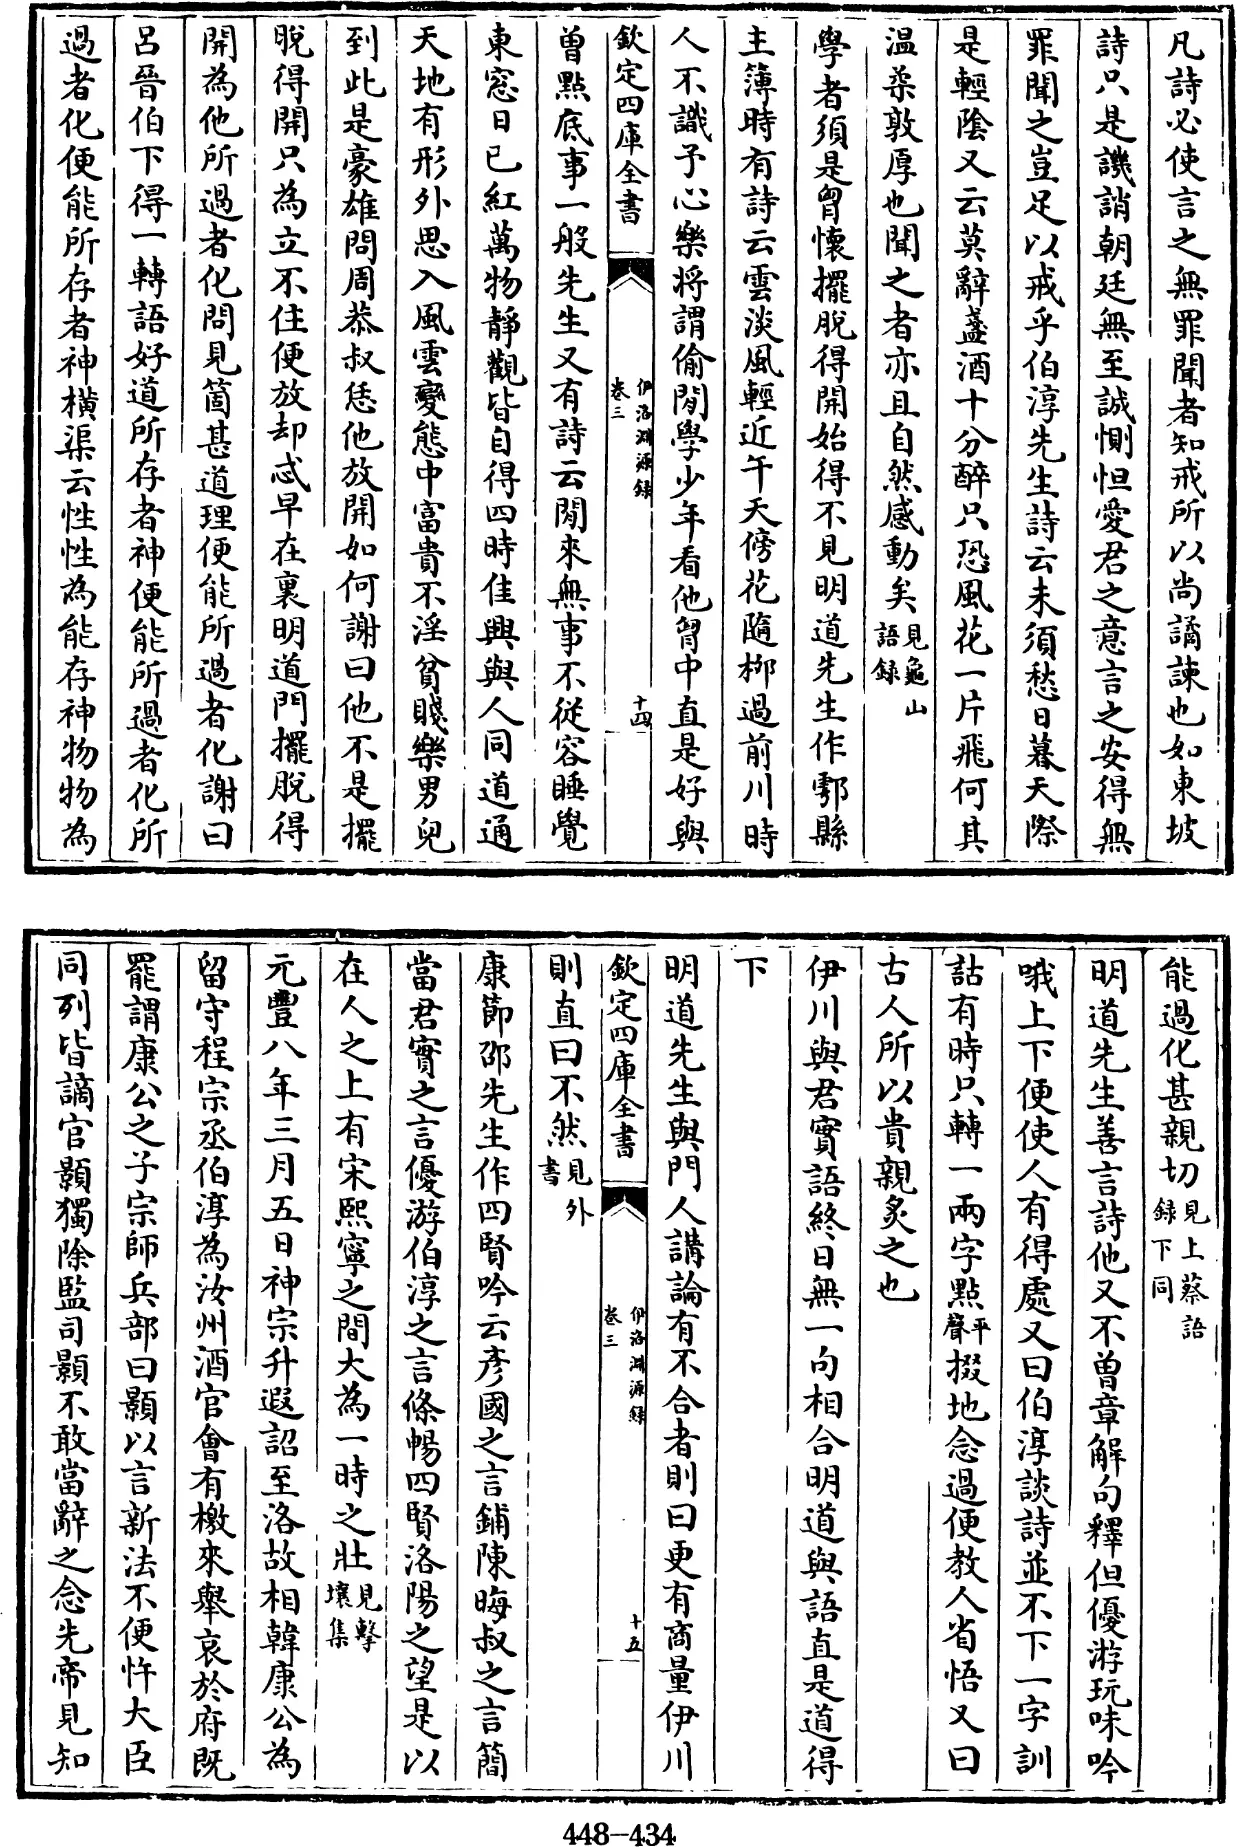 凡詩必使言之無罪聞者知戒所以尚譎諫也如東坡
詩只是譏誚朝廷無至誠惻怛愛君之意言之安得無
罪聞之豈足以戒乎伯淳先生詩云未須愁日暮天際
是輕陰又云莫辭盞酒十分醉只恐風花一片飛何其
温柔敦厚也聞之者亦且自然感動矣見龜山語録
學者須是胷懷擺脱得開始得不見明道先生作鄠縣
主簿時有詩云雲淡風輕近午天傍花隨柳過前川時
人不識予心樂將謂偷閒學少年看他胷中直是好與
欽定四庫全書 伊洛淵源録 卷三 十四
曾點底事一般先生又有詩云閒來無事不從容睡覺
東窓日已紅萬物靜觀皆自得四時佳興與人同道通
天地有形外思入風雲變態中富貴不淫貧賤樂男兒
到此是豪雄問周恭叔恁他放開如何謝曰他不是擺
脱得開只為立不住便放却忒早在裏明道門擺脱得
開為他所過者化問見箇甚道理便能所過者化謝曰
吕晉伯下得一轉語好道所存者神便能所過者化所
過者化便能所存者神横渠云性性為能存神物物為
能過化甚親切見上蔡語録下同
明道先生善言詩他又不曽章解句釋但優游玩味吟
哦上下便使人有得處又曰伯淳談詩並不下一字訓
詁有時只轉一兩字點平聲掇地念過便教人省悟又曰
古人所以貴親炙之也
伊川與君實語終日無一句相合明道與語直是道得
下
明道先生與門人講論有不合者則曰更有商量伊川
欽定四庫全書 伊洛淵源録 卷三 十五
則直曰不然見外書
康節邵先生作四賢吟云彦國之言鋪陳晦叔之言簡
當君實之言優游伯淳之言條暢四賢洛陽之望是以
在人之上有宋熙寧之間大為一時之壯見擊壤集
元豐八年三月五日神宗升遐詔至洛故相韓康公為
留守程宗丞伯淳為汝州酒官會有檄來舉哀於府既
罷謂康公之子宗師兵部曰顥以言新法不便忤大臣
同列皆謫官顥獨除監司顥不敢當辭之念先帝見知
448-434